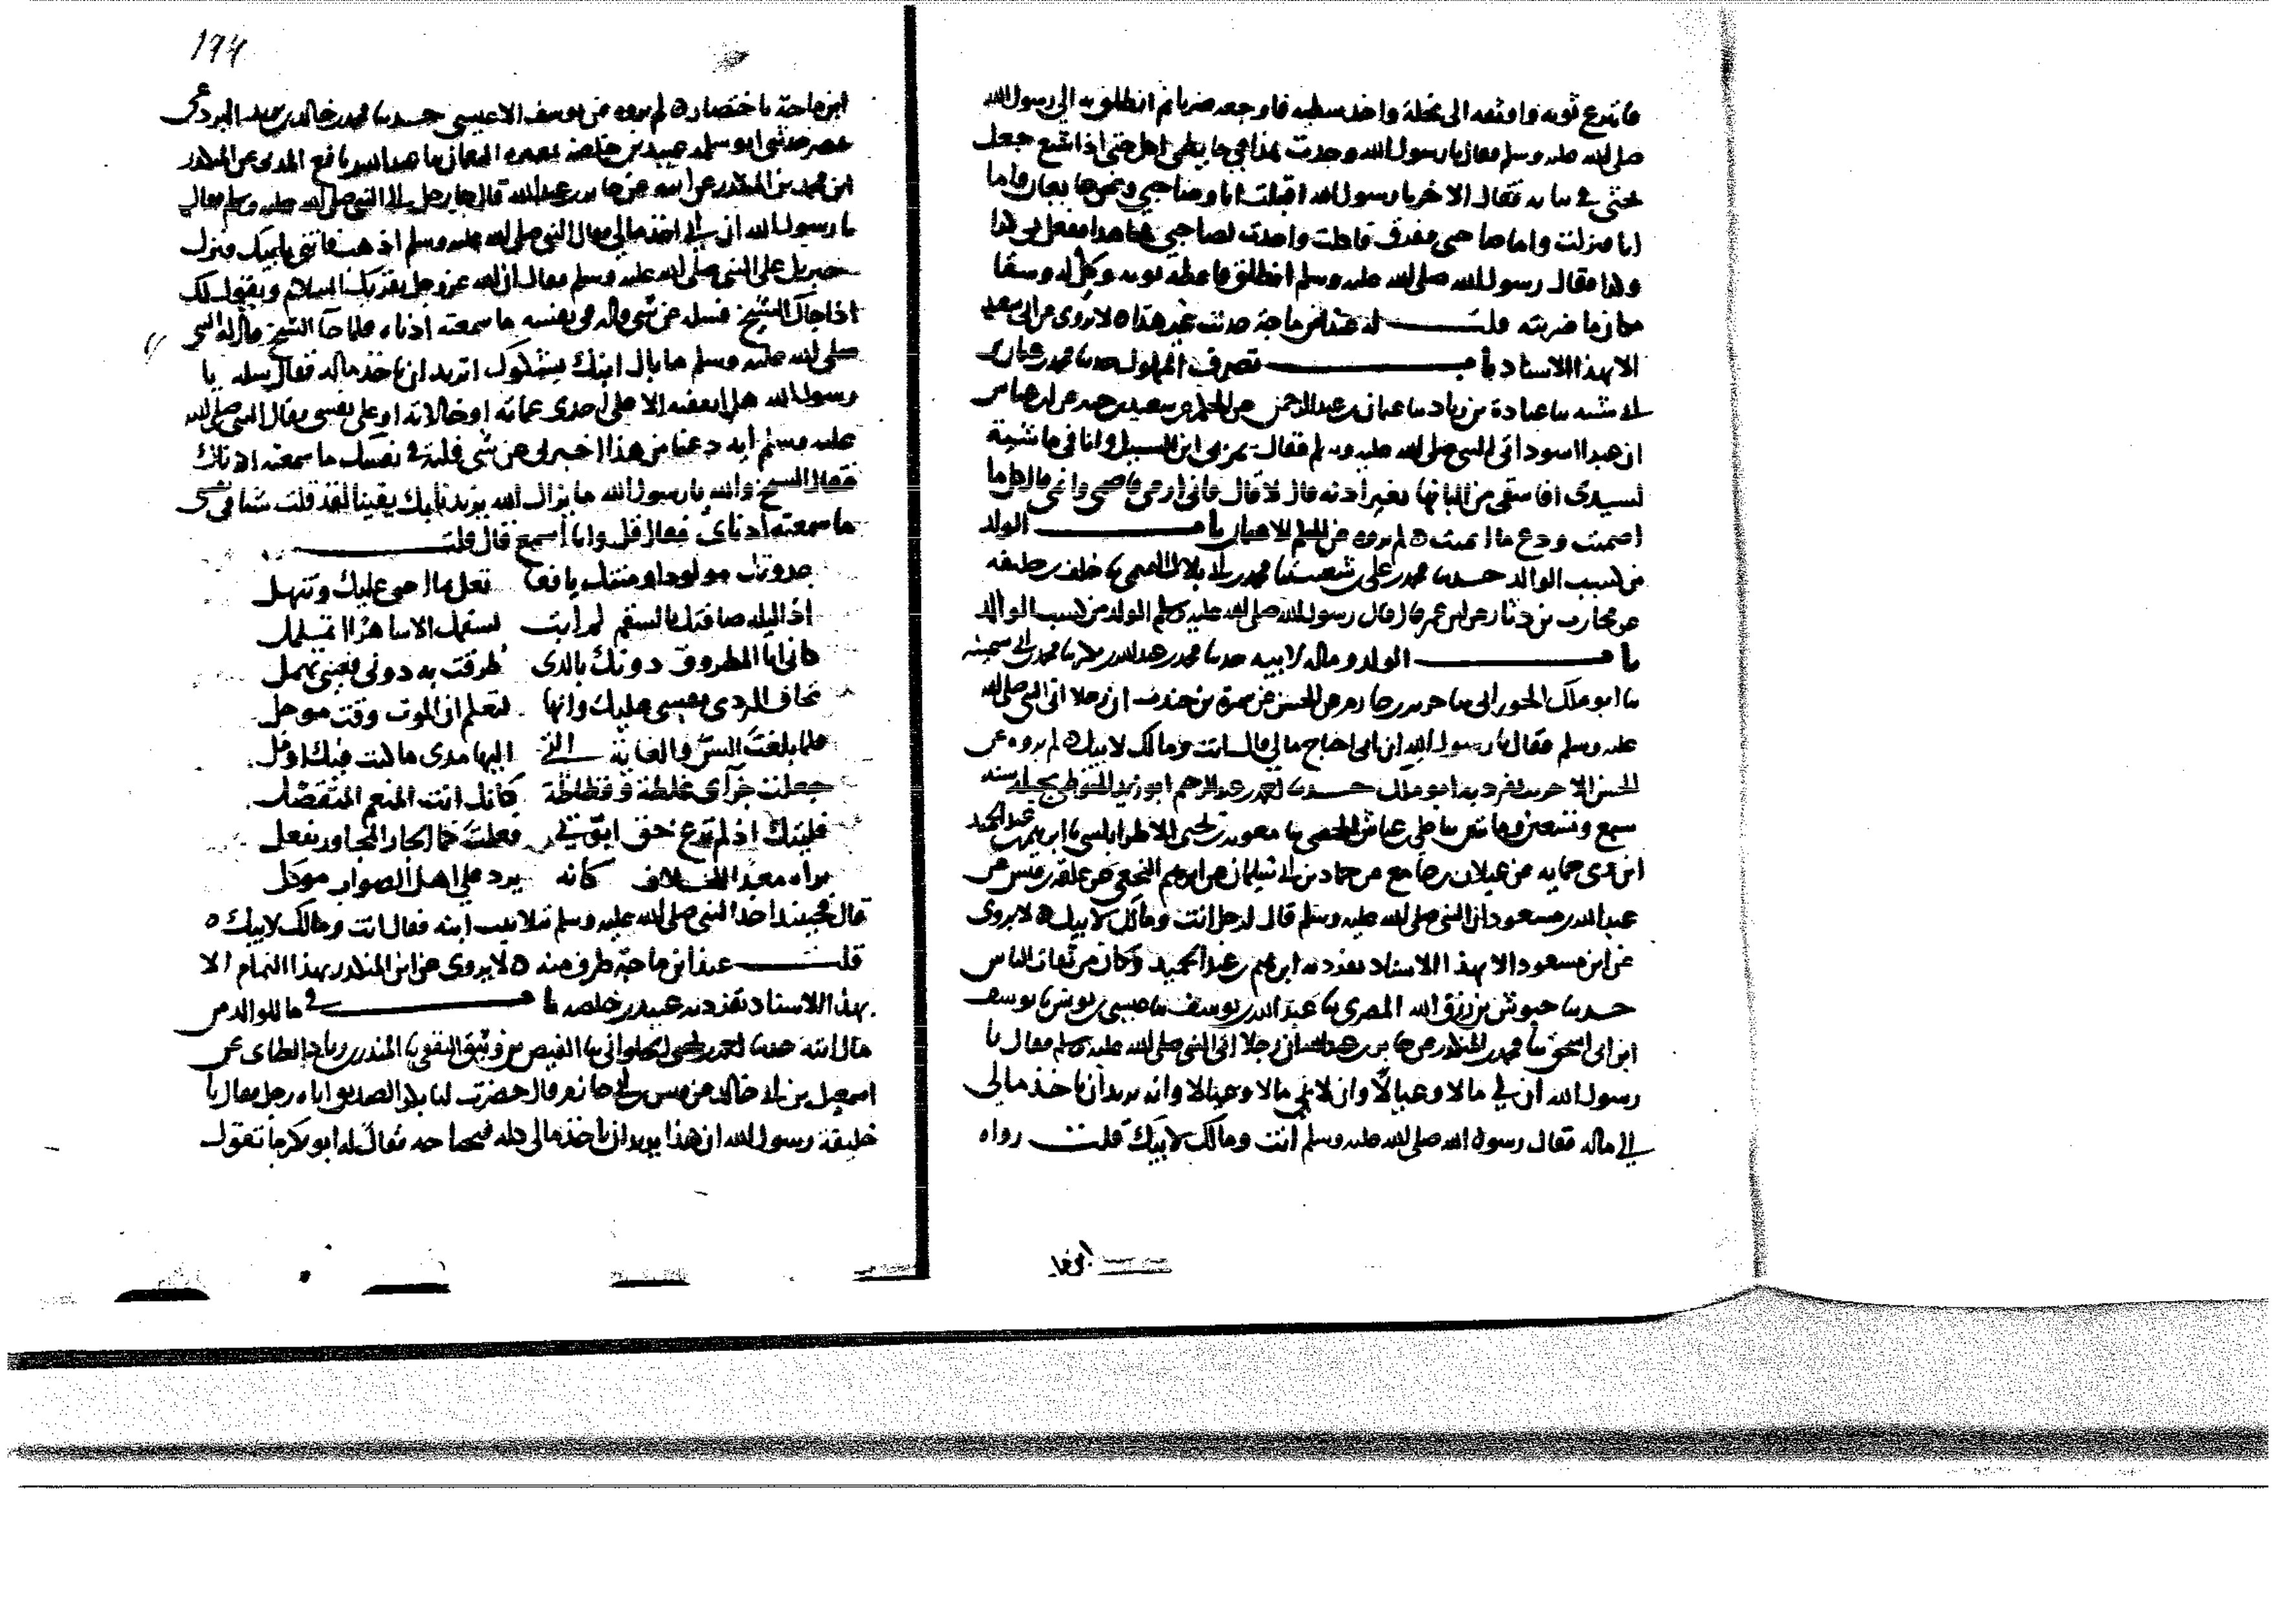 فانتزع ثوبه واوثقه الى نخلة واخذ سطيه فاوجعه ضربا ثم انطلق به الى رسول الله
صلى الله عليه وسلم فقال يا رسول الله وجدت هذا في حايطي اكل حتى اذا شبع جعل
يحثي في ثيابه فقال الاخر يا رسول الله اقبلت انا وصاحبي
انا فنزلت واما صاحبي لصاحبي هذا ففعل بي كذا
وكذا فقال رسول الله صلى الله عليه وسلم انطلق فاعطه ثوبه وكل له وسقا
مكان ما ضربته قلت له عند ابن ماجة حديث غير هذا لا يروى عن ابي سعيد
الا بهذا الاسناد باب تصرف المملوك حدثنا محمد بن عثمان بن
ابي شيبة ثنا عبادة بن زياد عبد الرحمن عن الحكم عن سعيد بن جبير عن ابن عباس
ان عبدا اسود اتى النبي صلى الله عليه وسلم فقال يمر بي ابن السبيل وانا في ماشية
لسيدي افاسقي من البانها بغير اذنه قال لا قال فاني ارمي فاصمي وانمي قال كل ما
اصميت ودع ما انميت لم يروه عن الحكم الا باب الولد
من كسب الوالد حدثنا محمد بن علي بن شعيب ثنا محمد بن ابي بلال ثنا خلف بن خليفة
عن محارب بن دثار عن ابن عمر قال قال رسول الله صلى الله عليه وسلم الولد من كسب الوالد
باب الولد وماله لابيه حدثنا محمد بن عبد الله بن بكر ثنا محمد بن ابي سمينة
ثنا ابو ملك الجوداني ثنا جرير بن حازم عن الحسن عن سمرة بن جندب ان رجلا اتى النبي صلى الله
عليه وسلم فقال يا رسول الله ان ابي اجتاح مالي قال انت ومالك لابيك لم يروه عن
الحسن الا جرير تفرد به ابو مالك حدثنا احمد بن عبد الرحيم ابو زيد الحوطي بجبلة سنة
سبع وسبعين ومايتين ثنا علي بن عياش الحمصي ثنا معوية بن يحيى الاطرابلسي ثنا ابرهيم بن عبد الحميد
ابن ذي حمايه عن غيلان بن جامع عن حماد بن ابي سليمان عن ابرهيم النخعي عن علقمة بن قيس عن
عبد الله بن مسعود ان النبي صلى الله عليه وسلم قال لرجل انت ومالك لابيك لا يروى
عن ابن مسعود الا بهذا الاسناد تفرد به ابرهيم بن عبد الحميد وكان من ثقات الناس
حدثنا حبوش بن رزق الله المصري ثنا عبد الله بن يوسف ثنا عيسى بن يونس ثنا يوسف
ابن ابي اسحق ثنا محمد بن المنكدر عن جابر بن عبد الله ان رجلا اتى النبي صلى الله عليه وسلم فقال يا
رسول الله ان لي مالا وعيالا وان لابي مالا وعيالا وانه يريد ان ياخذ مالي
الى ماله فقال رسول الله صلى الله عليه وسلم انت ومالك لابيك قلت رواه
ابن ماجة باختصار لم يروه عن يوسف الا عيسى حدثنا محمد بن خالد بن يزيد البردعي
بمصر حدثني ابو سلمة عبيد بن خلصة بمعرة النعمان ثنا عبد الله بن نافع المدني عن المنكدر
ابن محمد بن المنكدر عن ابيه عن جابر بن عبد الله قال جا رجل الى النبي صلى الله عليه وسلم فقال
يا رسول الله ان ابي اخذ مالي فقال النبي صلى الله عليه وسلم اذهب فاتني بابيك ونزل
جبريل على النبي صلى الله عليه وسلم فقال ان الله عز وجل يقريك السلام ويقول لك
اذا جاك الشيخ فسله عن شي قاله في نفسه ما سمعته اذناه فلما جا الشيخ قال له النبي
صلى الله عليه وسلم ما بال ابنك يشكوك اتريد ان تاخذ ماله فقال سله يا
رسول الله هل انفقه الا على احدى عماته او خالاته او على نفسي فقال النبي صلى الله
عليه وسلم ايه دعنا من هذا اخبرني عن شي قلته في نفسك ما سمعته اذناك
فقال الشيخ والله يا رسول الله ما يزال الله يزيدنا بك يقينا لقد قلت شيا في نفسي
ما سمعته اذناي فقال قل وانا اسمع قال قلت
غذوتك مولودا ومنتك يافعا تعل بما اجني عليك وتنهل
اذا ليلة ضافتك بالسقم لم ابت لسقمك الا ساهرا اتململ
كاني انا المطروق دونك بالذي طرقت به دوني فعيني تهمل
تخاف الردى نفسي عليك وانها لتعلم ان الموت وقت موجل
فلما بلغت السن والغاية التي اليها مدى ما كنت فيك اومل
جعلت جزاي غلظة وفظاظة كانك انت المنعم المتفضل
فليتك اذ لم ترع حق ابوتي فعلت كما الجار المجاور يفعل
تراه معدا للخلاف كانه برد على اهل الصواب موكل
قال فحينئذ اخذ النبي صلى الله عليه وسلم بتلابيب ابنه فقال انت ومالك لابيك
قلت عند ابن ماجة طرف منه لا يروى عن ابن المنكدر بهذا التمام الا
بهذا الاسناد تفرد به عبيد بن خلصه باب في ما للوالد من
مال ابنه حدثنا احمد بن يحيى الحلواني ثنا الفيض بن وثيق الثقفي ثنا المنذر بن زياد الطائي عن
اسمعيل بن ابي خالد عن قيس بن ابي حازم قال حضرت ابا بكر الصديق اتاه رجل فقال يا
خليفة رسول الله ان هذا يريد ان ياخذ مالي كله فيجتاحه فقال له ابو بكر ما تقول